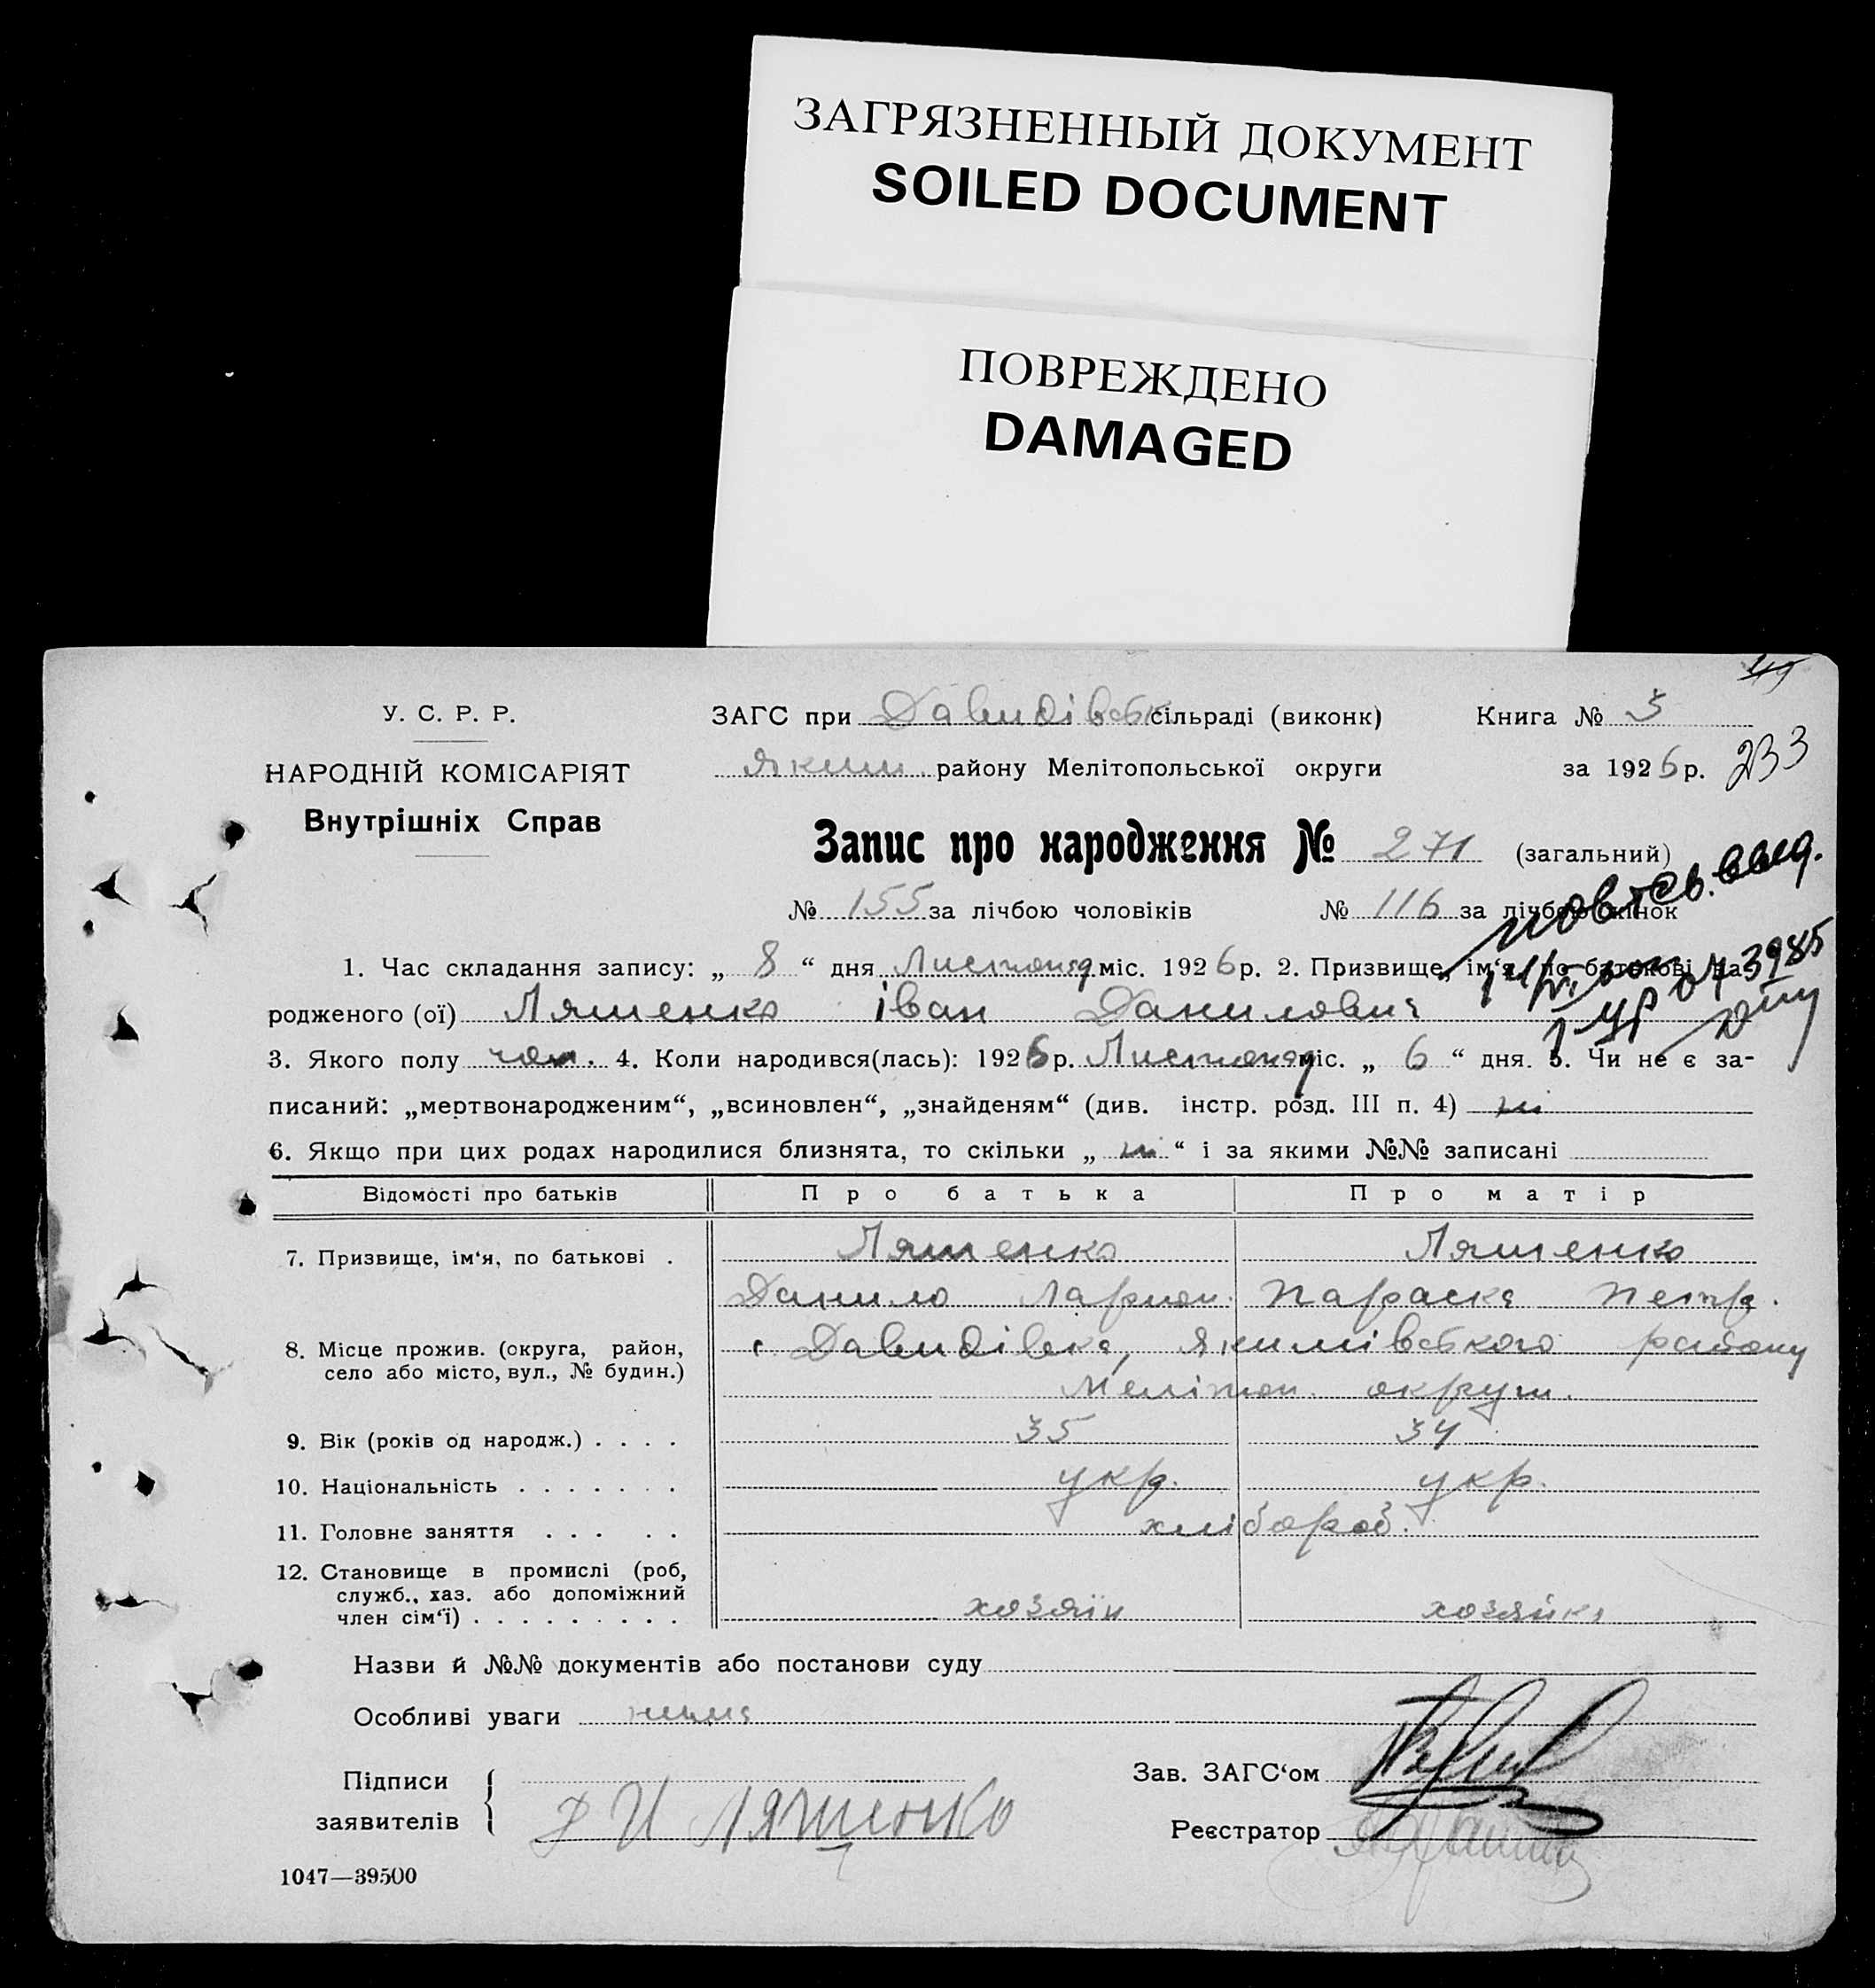 ЗАГРЯЗНЕННЫЙ ДОКУМЕНТ
SOILED DOCUMENT
ПОВРЕЖДЕНО
DAMAGED
У. С. Р. Р.
НАРОДНІЙ КОМІСАРІЯТ
Внутрішніх Справ
ЗАГС при Давидівськ сільраді (виконк)
Книга № 3
Яким. району Мелітопольської округи
за 1926 р. 233
Запис про народження № 271 (загальний)
№ 155 за лічбою чоловіків № 116 за лічбою жінок
повт св. выд.
1. Час складання запису: „ 8 “ дня Листопад міс. 1926 р. 2. Призвище, ім‘я, по батькові на-
родженого (ої) Ляшенко Іван Данилович
3. Якого полу чол. 4. Коли народився(лась): 1926 р. Листопад міс. „ 6 “ дня. 5. Чи не є за-
писаний: „мертвонародженим“, „всиновлен“, „знайденям“ (див. інстр. розд. III п. 4) ні
6. Якщо при цих родах народилися близнята, то скільки „ ні “ і за якими №№ записані
Відомості про батьків Про батька Про матір
7. Призвище, ім‘я, по батькові . Ляшенко Ляшенко
Данило Ларион. Параска Петр.
8. Місце прожив. (округа, район, с Давидівка, Якимівського району
село або місто, вул., № будин.)
Мелітоп. округи.
9. Вік (років од народж.) . . . . 35 34
10. Національність . . . . . . . укр. укр.
11. Головне заняття . . . . . хлібороб.
12. Становище в промислі (роб,
служб., хаз. або допоміжний
член сім‘ї) . . . . . . . . . хозяїн хозяйка
Назви й №№ документів або постанови суду
Особливі уваги нима
Підписи
заявителів
Д И Ляшенко
Зав. ЗАГС‘ом
Реєстратор
1047—39500